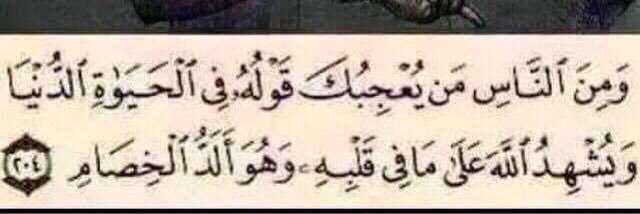 وَمِنَ ٱلنَّاسِ مَن يُعْجِبُكَ قَوْلُهُۥ فِى ٱلْحَيَوٰةِ ٱلدُّنْيَا
وَيُشْهِدُ ٱللَّهَ عَلَىٰ مَا فِى قَلْبِهِۦ وَهُوَ أَلَدُّ ٱلْخِصَامِ ٢٠٤